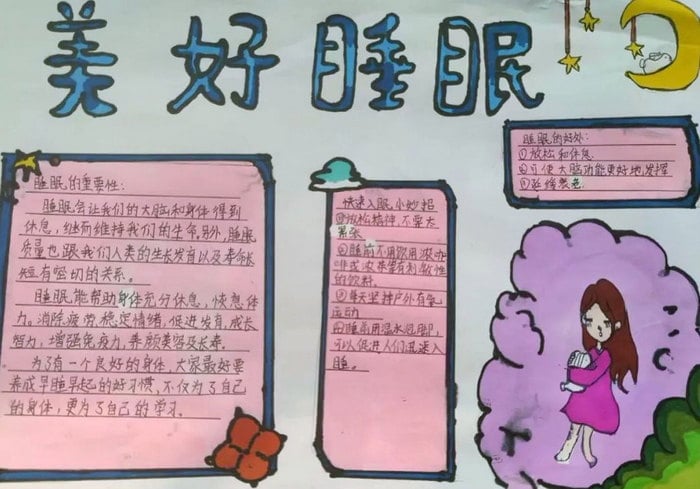 美好睡眠
睡眠的重要性:
睡眠会让我们的大脑和身体得到
休息,继而维持我们的生命,另外,睡眠
质量也跟我们人类的生长发育以及寿命长
短有密切的关系。
睡眠能帮助身体充分休息,恢复体
力,消除疲劳,稳定情绪,促进发育,成长
智力,增强免疫力,养颜美容及长寿。
为了有一个良好的身体,大家最好要
养成早睡早起的好习惯,不仅为了自己
的身体,更为了自己的学习。
快速入眠小妙招
①放松精神,不要太
紧张
②睡前不用饮用浓咖
啡或浓茶等有刺激性
的饮料。
③每天坚持户外有氧
运动
④睡前用温水泡脚,
可以促进人们迅速入
睡。
睡眠的好处:
①放松和休息
②可使大脑功能更好地发挥
③延缓衰老